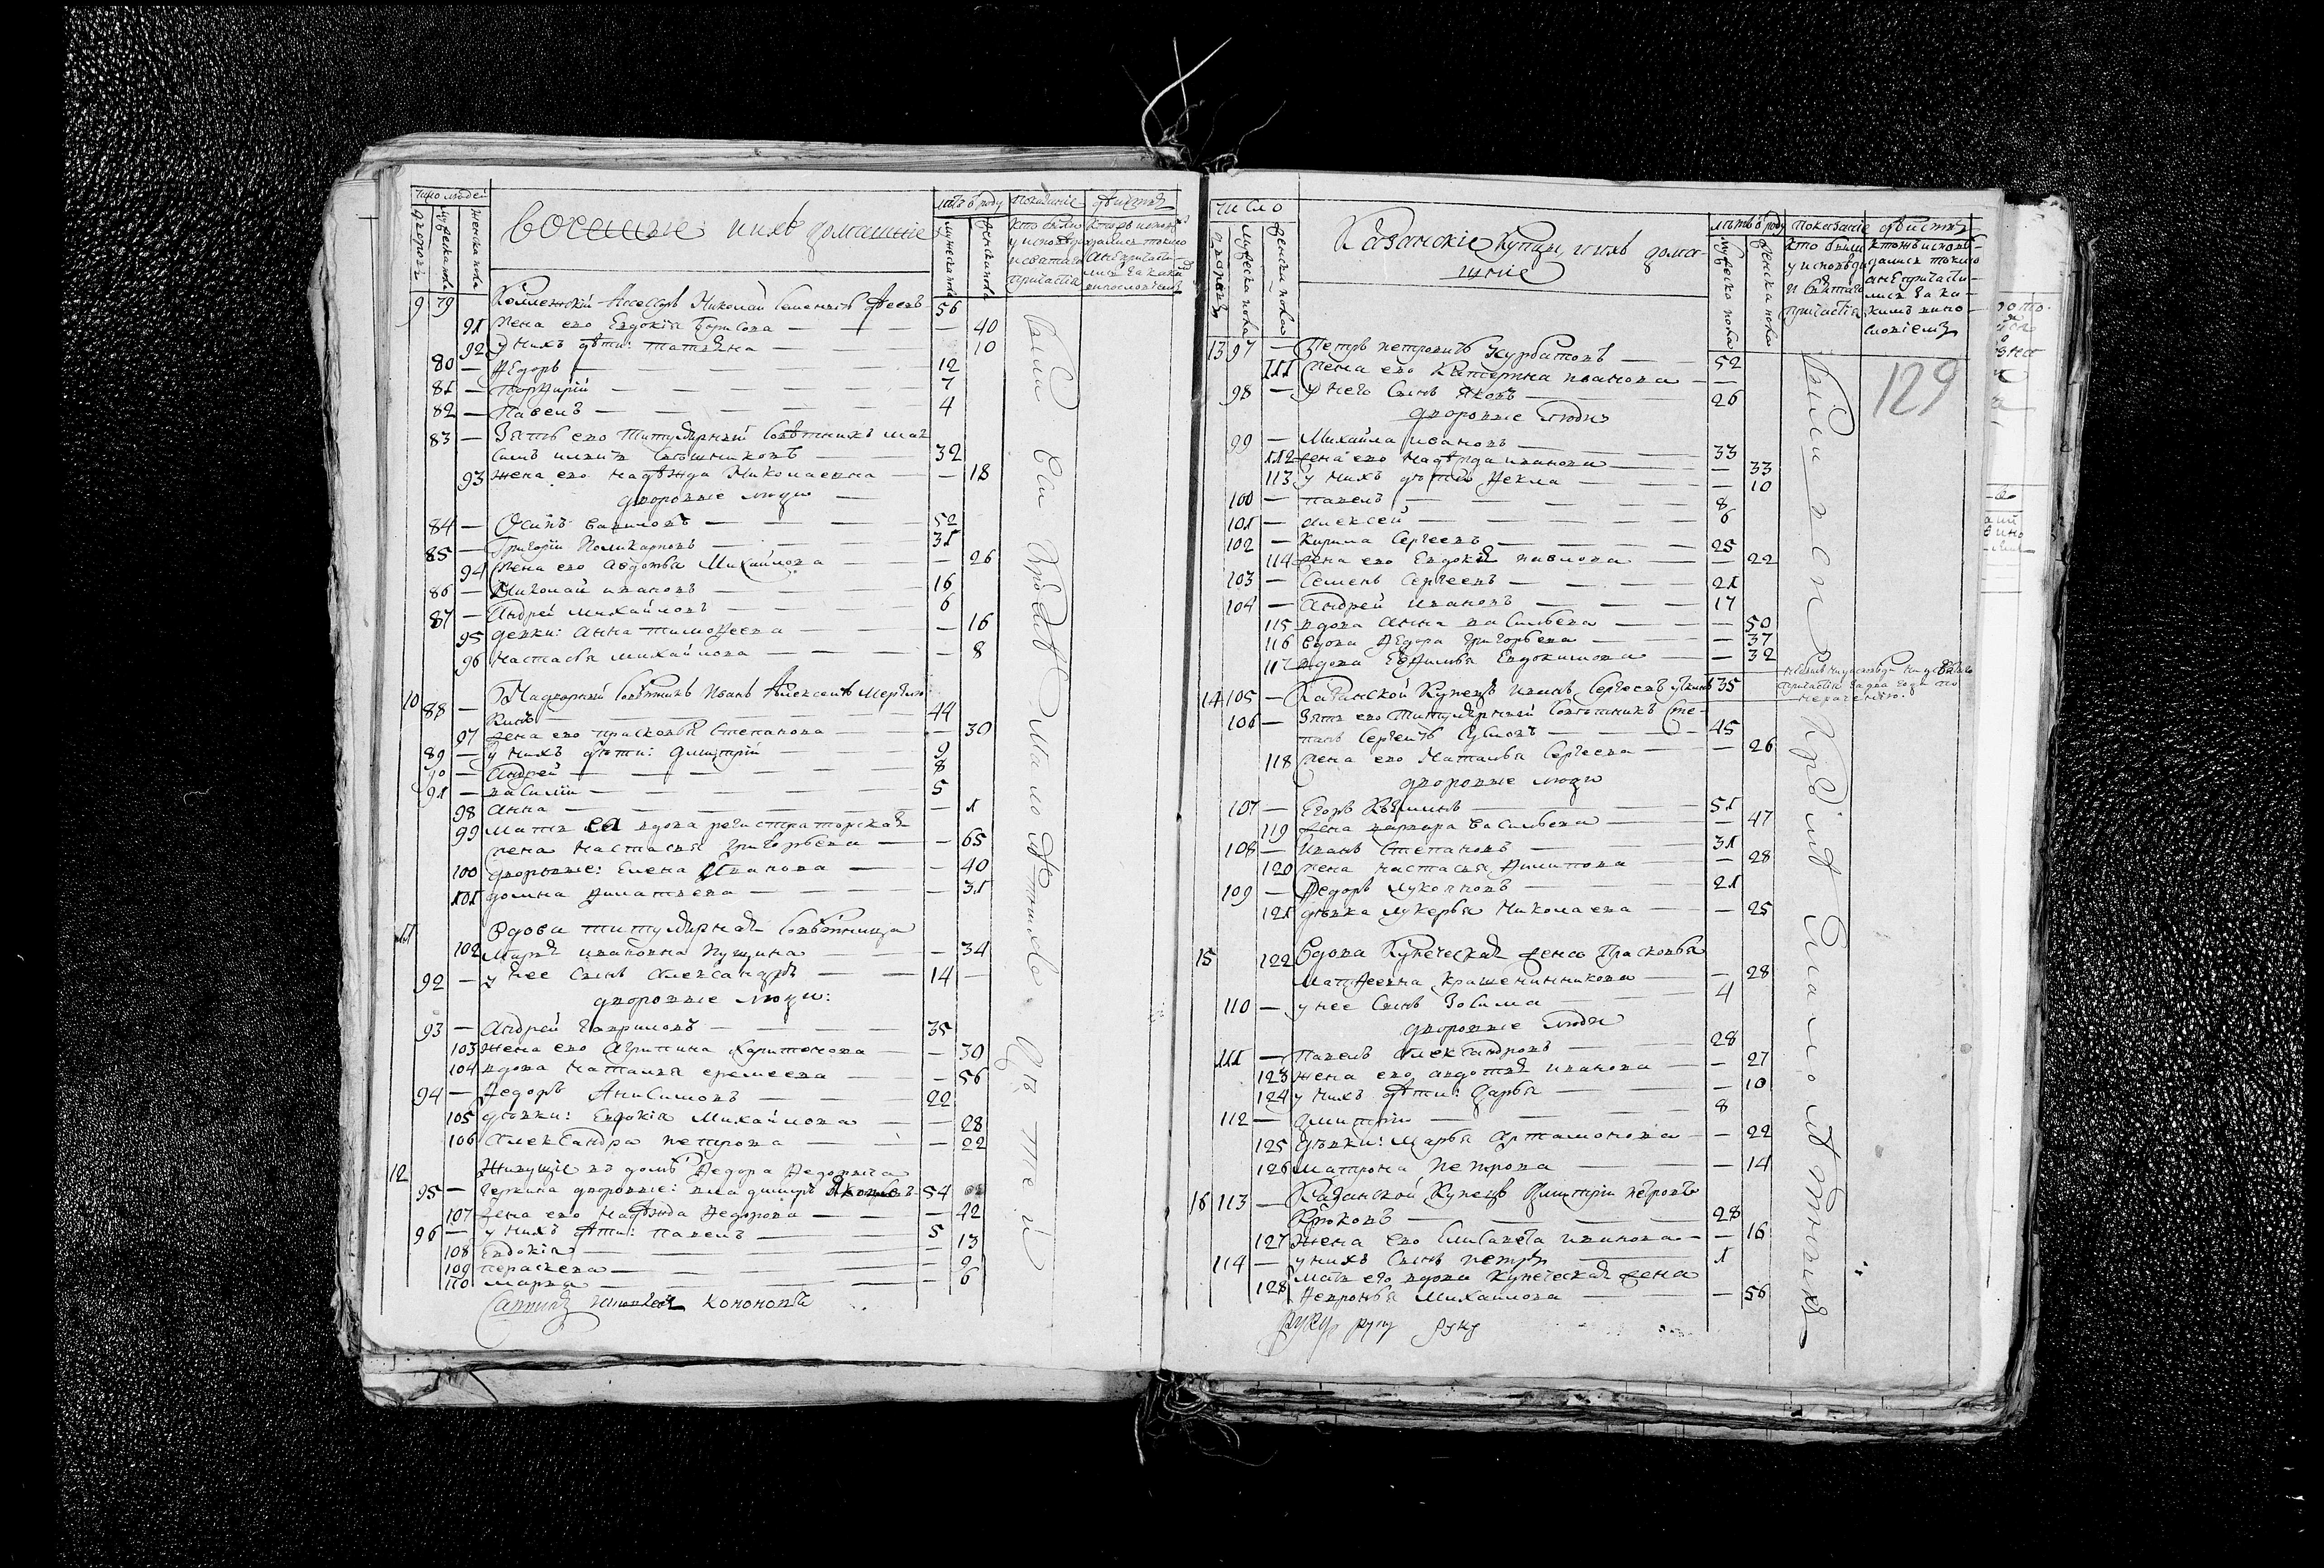 число людей
дворовъ
мужеска пола
женска пола
военные ихъ домашніе
лѣтъ ѿ роду
мужеска пола
женска пола
показаніе дѣйствія
кто были у исповѣди и святаго причастія
9 79 Коллежскій Ассессоръ Николай Семеновъ 56
91 жена его Евдокія Борисова — 40
92 у нихъ дѣти: татьяна — 10
80 — Ѳедоръ — 12
81 — Порфирій — 7
82 — Павелъ — 4
83 — Зять его титулярный совѣтникъ мак
симъ 32
93 жена его надѣжда Николаевна — 18
дворовые люди
84 — Осипъ вавиловъ — 52
85 — Григорій Поликарповъ — 31
94 жена его Авдотья Михайлова — 26
86 — Николай ивановъ — 16
87 — Андрей михайловъ — 6
95 девки: Анна тимоѳеева — 16
96 настасья михайлова — 8
10 88 — Надворный совѣтникъ Иванъ Алексеевъ
44
97 жена его прасковья Степанова — 30
89 — у нихъ дѣти: дмитрій — 9
90 — Андрей — 8
91 — василій — 5
98 Анна — 1
99 мать ея вдова регистраторская
жена настасья григорьева — 65
100 дворовые: Елена Иванова — 40
101 домна филатьева — 31
11 вдова титулярная совѣтница
102 марья ивановна пущина — 34
92 — у нее сынъ Александръ — 14 —
дворовые люди:
93 — Андрей гавриловъ — 35
103 жена его Агрипина харитонова — 30
104 вдова наталья еремеева — 56
94 — Ѳедоръ Анисимовъ — 22
105 дѣвки: Евдокія Михайлова — 28
106 Александра петрова — 22
12 Живущіе въ домѣ Ѳедора Ѳедорыча
95 — геркина дворовые: владимиръ яковлевъ 54
107 жена его надѣжда Ѳедорова — 42
96 — у нихъ дѣти: павелъ — 5
108 Евдокія — 13
109 параскева — 9
110 марѳа — 6
кононовъ
число
дворовъ
мужеска пола
женска пола
Казанскіе купцы, и ихъ домаш-
шніе
лѣтъ ѿ роду
мужеска пола
женска пола
показаніе дѣйствія
кто были у исповѣди и святаго причастія
ктожъ исповѣдались токмо а не причастились за какимъ винословіемъ
129
13 97 — Петръ петровичъ Курбатовъ — 52
111 жена его Катерина иванова —
98 — у него сынъ Яковъ — 26
дворовые люди
99 — Михайла ивановъ — 33
112 жена его надѣжда иванова — 33
113 у нихъ дѣти Ѳекла — 10
100 — павелъ — 8
101 — алексей — 6
102 — Кирила Сергеевъ — 25
114 жена его Евдокія павлова — 22
103 — Семенъ Сергеевъ — 21
104 — Андрей ивановъ — 17
115 вдова анна васильева — 50
116 вдова Ѳедора григорьева — 37
117 вдова Евдокимова — 32
14 105 — Казанской купецъ иванъ Сергеевъ 35
106 — Зять его титулярный совѣтникъ сте-
панъ Сергеевъ 45
118 жена его Наталья Сергеева — 26
дворовые люди
107 — Егоръ Кузминъ — 51
119 жена варвара васильева — 47
108 — Иванъ Степановъ — 31
120 жена настасья филипова — 28
109 — Ѳедоръ лукояновъ — 21
121 дѣвка лукерья Николаева — 25
15 122 вдова купеческая жена Прасковья
матѳеевна крашенинникова — 28
110 — у нее сынъ Зосима — 4
дворовые люди
111 — павелъ Александровъ — 28
123 жена его авдотья иванова — 27
124 у нихъ дѣти: Дарья — 10
112 — дмитрій — 8
125 дѣвки: марья артамонова — 22
126 матрона петрова — 14
16 113 — Казанской купецъ Дмитрій петровъ
Крюковъ — 28
127 жена его елисавета иванова — 16
114 — у нихъ сынъ петръ — 1
128 мать его вдова купеческая жена
Ѳевронья михайлова — 56
руку руку руку